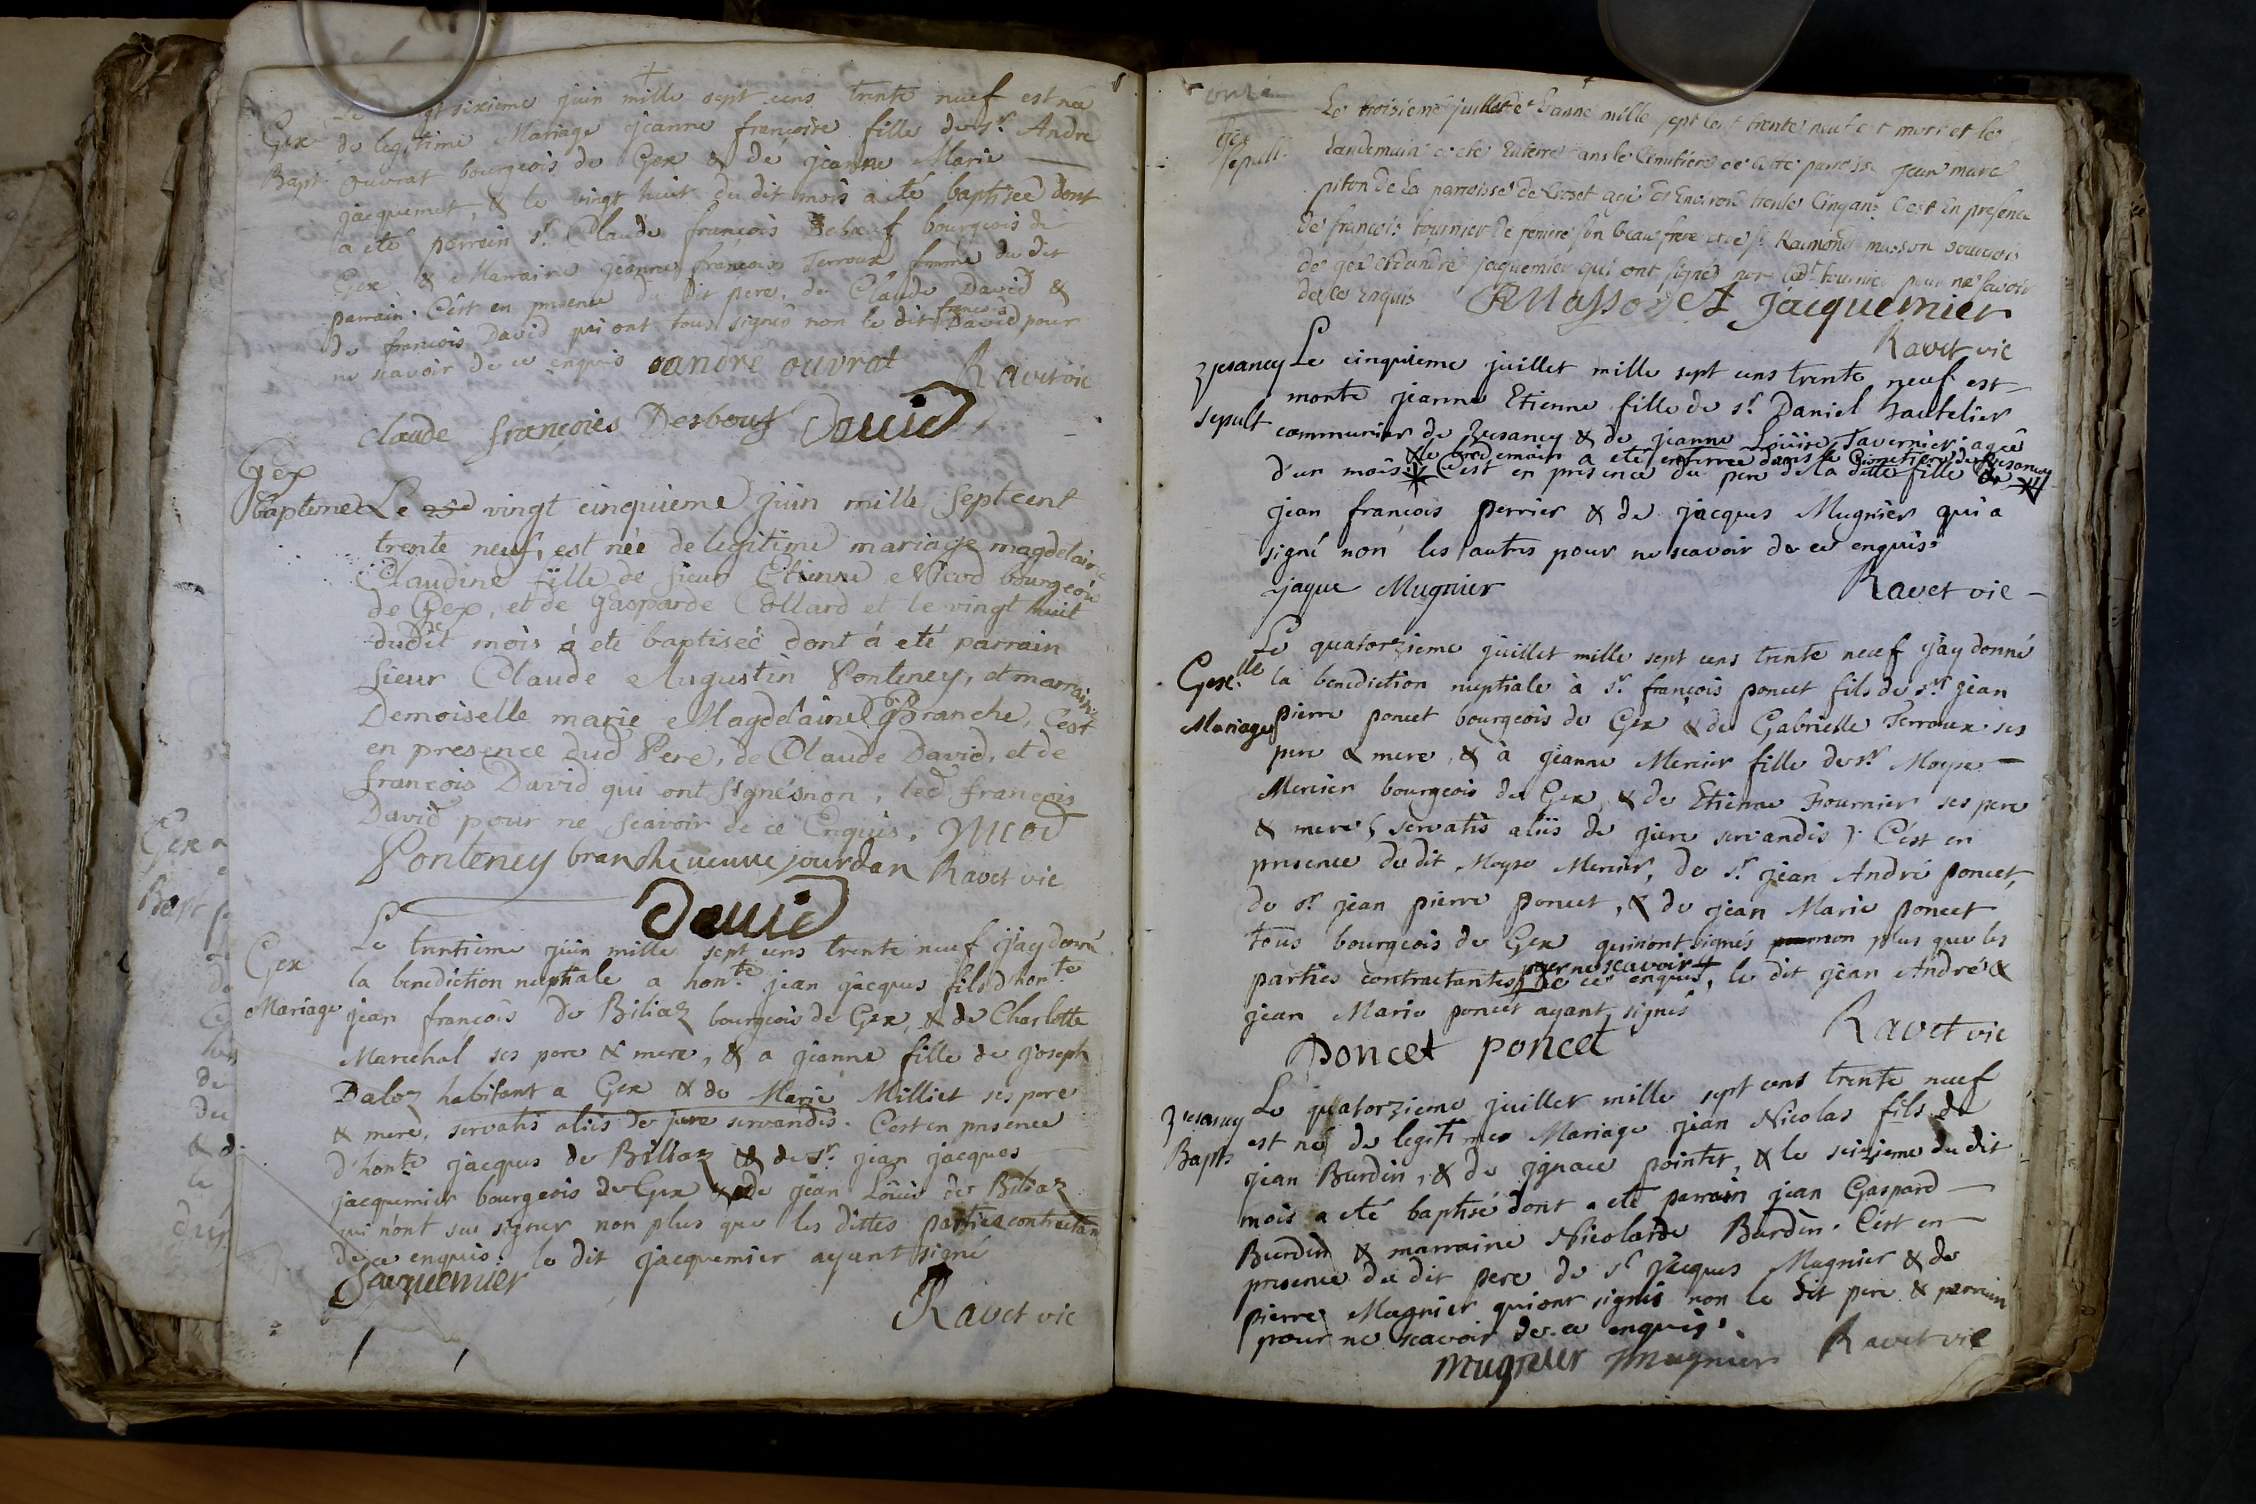 sixieme juin mille sept cens trente neuf est née
Gex de legitime Mariage jeanne françoise fille de sr. André
Bapt. ouvrat bourgeois de Gex & de jeanne Marie
jacquemet, & le vingt huit du dit mois a eté baptisée dont
a eté parrain sr. Claude françois bourgeois de
Gex & Marraine jeanne françoise Terroux femme du dit
parrain. C'est en presence du dit pere, de Claude David &
de francois David qui ont tous signés non le dit francois David pour
ne scavoir de ce enquis andré ouvrat Ravet vic
claude françoies Desbouf David
Gex
bapteme Le vingt cinquieme juin mille septcent
trente neuf, est née de legitime mariage magdelaine
Claudine fille de sieur Etienne Nicod bourgeois
de Gex, et de gasparde Collard et le vingt huit
dudit mois á eté baptiseé dont á eté parrain
sieur Claude Augustin Ponteney, et marraine
Demoiselle marie Magdelaine Branche, C'est
en presence dud Pere, de Claude David, et de
françois David qui ont signés non, led françois
David pour ne scavoir de ce Enquis. Nicod
Ponteney branche veuve jourdan Ravet vic
David
Le trentième juin mille sept cens trente neuf j'ay donné
Gex la benediction nuptiale a honte. jean jâcques fils d'honte
Mariage jean françois De Biliaz bourgeois de Gex, & de Charlotte
Marechal ses pere & mere, & a jeanne fille de joseph
Daloz habitant a Gex & de Marie Milliet ses pere
& mere, servatis aliis de jure servandis. C'est en presence
d'honte jacques de Billiaz & de sr. jean jacques
jacquemier bourgeois de Gex & de jean Loüis de Biliaz
qui n'ont sus signer non plus que les dittes parties contractan
de ce enquis. le dit jacquemier ayant signé
Jacquemier
Ravet vic
onze
Le troisieme juillet de Lanné mille sept cent trente neuf est mort et le
Gex
sepult. Landemain a eté Enterré dans le Cimitiere de cette paroisse Jean marc
piton de la parroisse de Crozet agé d'Environ trente Cinq ans C'est En presence
de françois fournier de feniere son beau frere et de sr. Raimond masson bourgeois
de gex et d'andré jaquemier qui ont signés non led.t fournier pour ne savoir
de ce Enquis RMasson A Jacquemier
Ravet vic
Vesancy Le cinquieme juillet mille sept cens trente neuf est
sepult morte jeanne Etienne fille de sr. Daniel hautelier
communier de Vesancy & de jeanne Loüise Tavernier agée
& le lendemain a eté enterrée dans le Cimetiere de Vesancy
d'un mois. C'est en presence du pere de la ditte fille de
jean françois perrier & de jacques Mugnier qui a
signé non les autres pour ne scavoir de ce enquis
jaque Mugnier Ravet vic
Le quatorzieme juillet mille sept cens trente neuf j'ay donné
Gex. la benediction nuptiale à sr. françois poncet fils de sr. jean
Mariage pierre poncet bourgeois de Gex & de Gabrielle Terroux ses
pere & mere, & à jeanne Mercier fille de sr. Moyse
Mercier bourgeois de Gex & de Etienne Fournier ses pere
& mere (servatis aliis de jure servandis) C'est en
presence du dit Moyse Mercier, de sr. jean André poncet,
de sr. jean pierre poncet, & de jean Marie poncet
tous bourgeois de Gex qui n'ont signés non plus que les
parties contractantes pour ne scavoir de ce enquis, le dit jean André &
jean Marie poncet ayant signés
Poncet poncet Ravet vic
Le quatorzieme juillet mille sept cens trente neuf
Vesancy est né de legitime Mariage jean Nicolas fils de
Bapt. jean Burdin, & de ignace pointet, & le seizieme du dit
mois a eté baptisé dont a eté parrain jean Gaspard
Burdin & marraine Nicolarde Burdin. C'est en
presence du dit pere de sr. jacques Mugnier & de
pierre Mugnier qui ont signés non le dit pere & parrain
pour ne scavoir de ce enquis.
mugnier mugnier Ravet vic